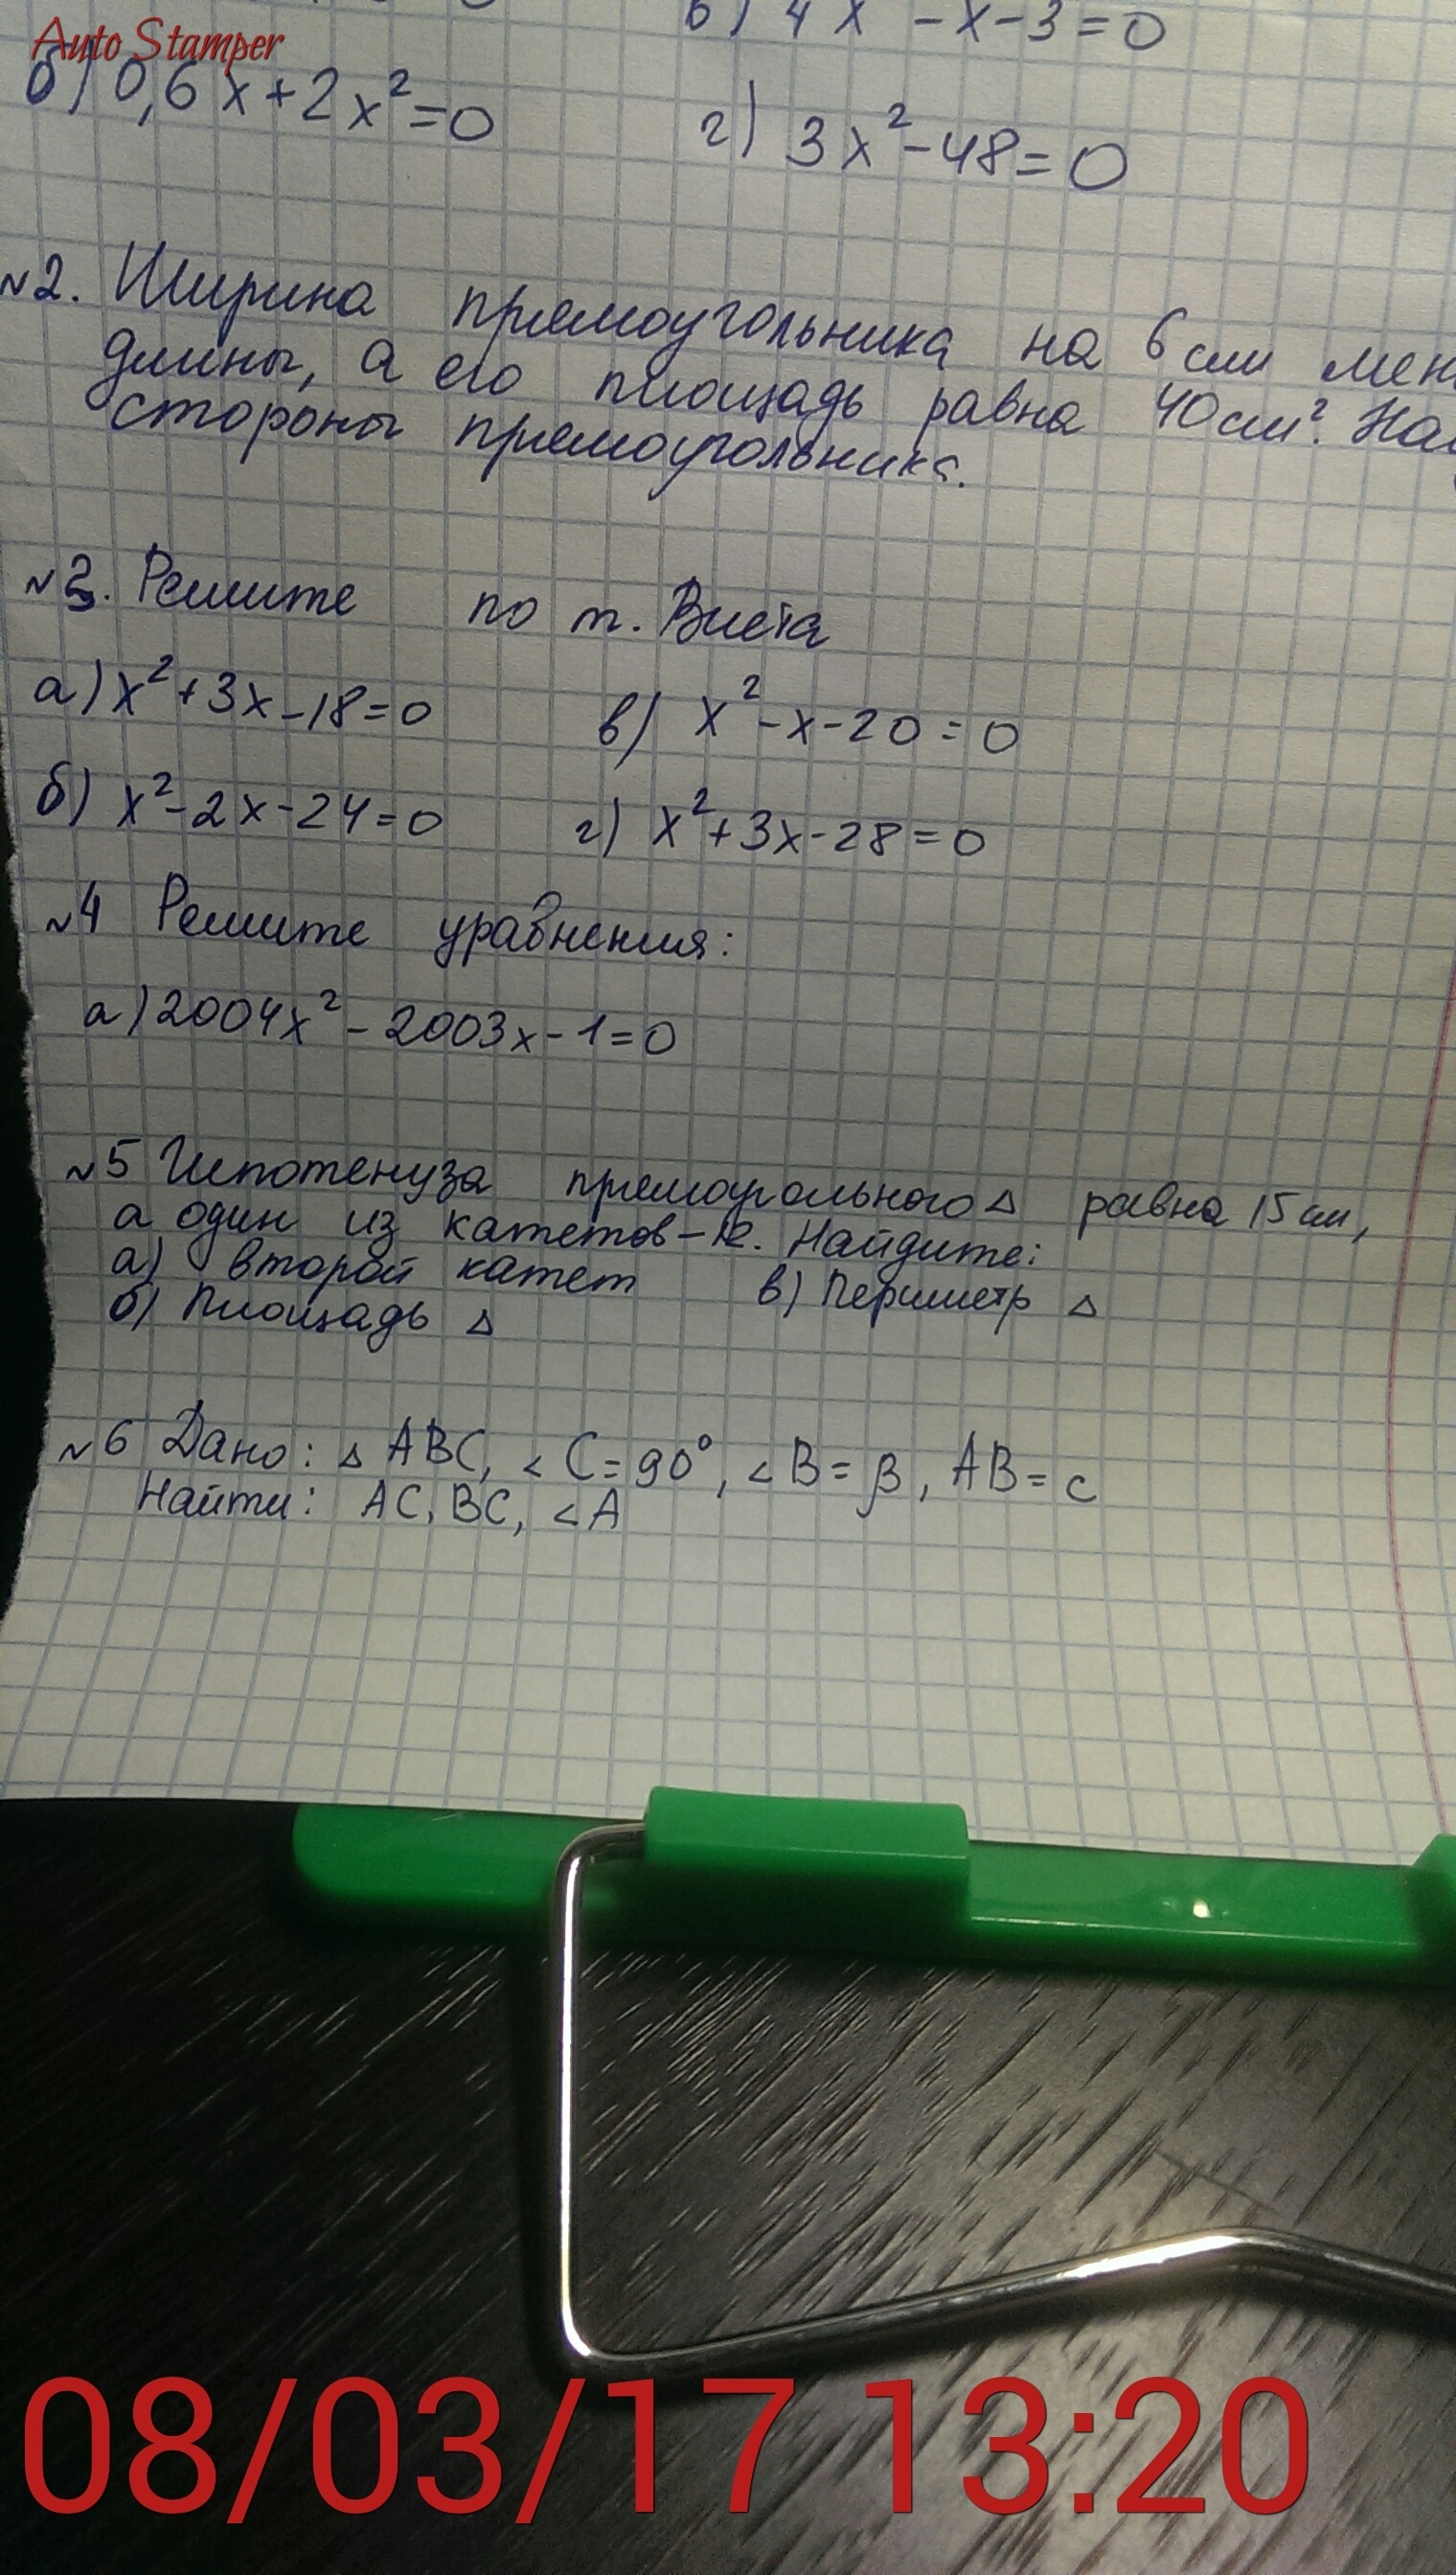 Auto Stamper
в) 4x -x-3=0
б) 0,6x+2x²=0
г) 3x²-48=0
№2. Ширина прямоугольника на 6см мен
длины, а его площадь равна 40см². На
стороны прямоугольника.
№3. Решите по т. Виета
а) x²+3x-18=0 в) x²-x-20=0
б) x²-2x-24=0 г) x²+3x-28=0
№4 Решите уравнения:
а) 2004x²-2003x-1=0
№5 Гипотенуза прямоугольного △ равна 15см,
а один из катетов-12. Найдите:
а) второй катет в) Периметр △
б) Площадь △
№6 Дано: △ ABC, ∠C=90°, ∠B=β, AB=c
Найти: AC, BC, ∠A
08/03/17 13:20